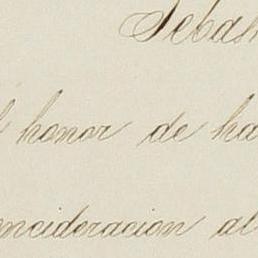 Sebas
l honor de ha
oncideracion al